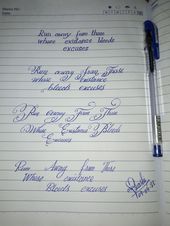 Run away from those
whose existance bleeds
excuses
Run away from Those
whose existance
bleeds excuses
Run Away From Those
Whose Existance Bleeds
Excuses
Run Away from Those
Whose existance
bleeds excuses